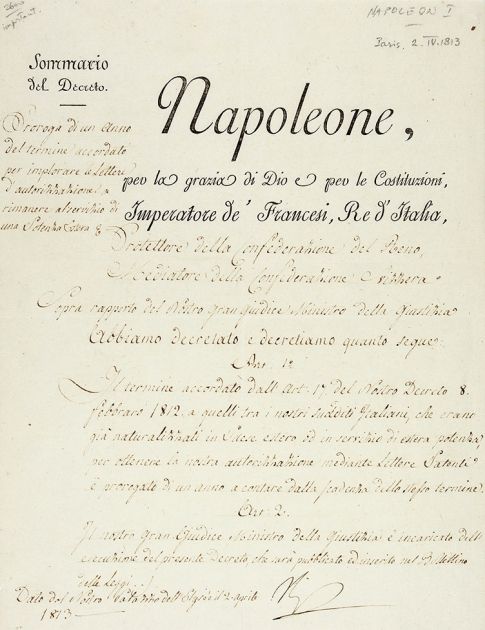 NAPOLEON I
Paris, 2. IV. 1813
Sommario
del Decreto.
Proroga di un anno
del termine accordato
per implorare le Lettere
d'autorizzazione a
rimanere al servizio di
una Potenza Estera
Napoleone,
per la grazia di Dio e per le Costituzioni,
Imperatore de' Francesi, Re d'Italia,
Protettore della Confederazione del Reno,
Mediatore della Confederazione Svizzera
Sopra rapporto del Nostro Gran Giudice Ministro della Giustizia
Abbiamo decretato e decretiamo quanto segue:
Art. 1.
Il termine accordato dall'Art. 17 del Nostro Decreto 8.
febbraro 1812. a quelli tra i nostri sudditi Italiani, che erano
già naturalizzati in Paese estero od in servizio di estera potenza,
per ottenere la nostra autorizzazione mediante Lettere Patenti
è prorogato di un anno a contare dalla scadenza dello stesso termine.
Art. 2.
Il nostro Gran Giudice Ministro della Giustizia è incaricato dell'
esecuzione del presente Decreto, che sarà pubblicato ed inserito nel Bollettino
delle Leggi.
Dato dal Nostro Palazzo dell'Eliseo il 2. aprile
1813